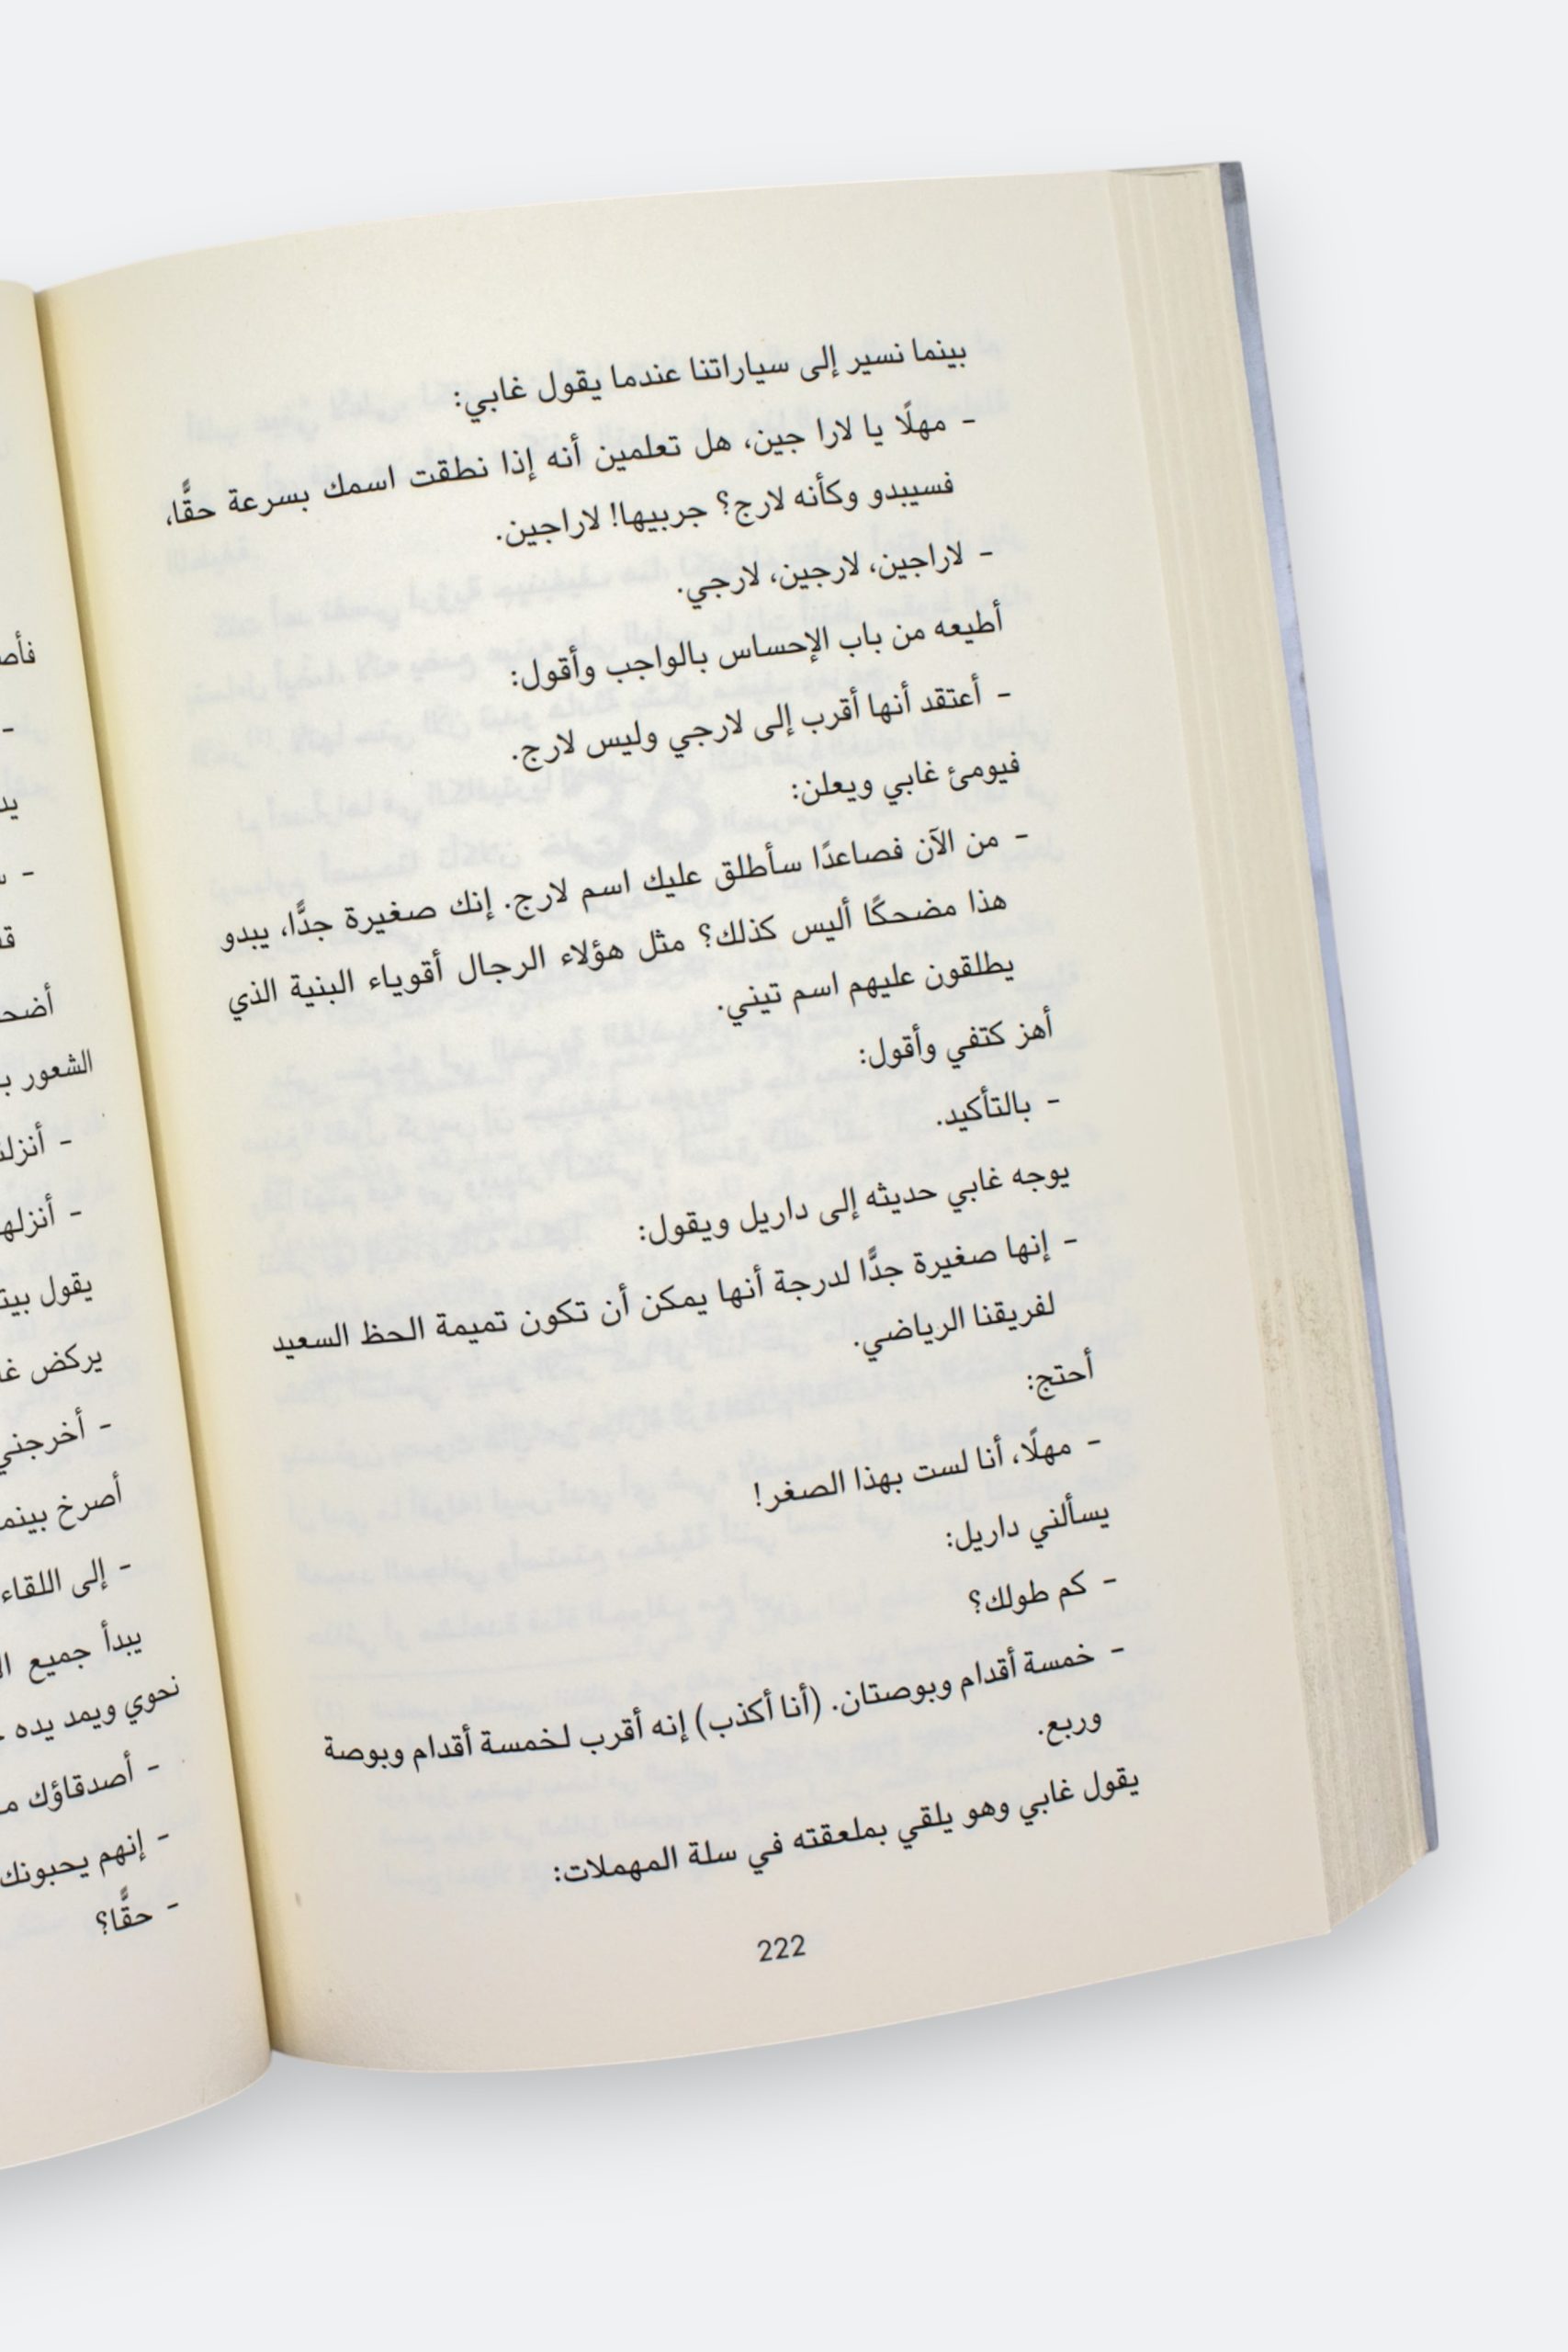 بينما نسير إلى سياراتنا عندما يقول غابي:
- مهلًا يا لارا جين، هل تعلمين أنه إذا نطقت اسمك بسرعة حقًّا،
فسيبدو وكأنه لارج؟ جربيها! لاراجين.
- لاراجين، لارجين، لارجي.
أطيعه من باب الإحساس بالواجب وأقول:
- أعتقد أنها أقرب إلى لارجي وليس لارج.
فيومئ غابي ويعلن:
- من الآن فصاعدًا سأطلق عليك اسم لارج. إنك صغيرة جدًّا، يبدو
هذا مضحكًا أليس كذلك؟ مثل هؤلاء الرجال أقوياء البنية الذي
يطلقون عليهم اسم تيني.
أهز كتفي وأقول:
- بالتأكيد.
يوجه غابي حديثه إلى داريل ويقول:
- إنها صغيرة جدًّا لدرجة أنها يمكن أن تكون تميمة الحظ السعيد
لفريقنا الرياضي.
أحتج:
- مهلًا، أنا لست بهذا الصغر!
يسألني داريل:
- كم طولك؟
- خمسة أقدام وبوصتان. (أنا أكذب) إنه أقرب لخمسة أقدام وبوصة
وربع.
يقول غابي وهو يلقي بملعقته في سلة المهملات:
222
-
-
الشعور
-
-
يقول
يركض
- أخرجني
أصرخ بينما
- إلى اللقاء
يبدأ جميع
نحوي ويمد يده
- أصدقاؤك
- إنهم يحبونك
- حقًّا؟